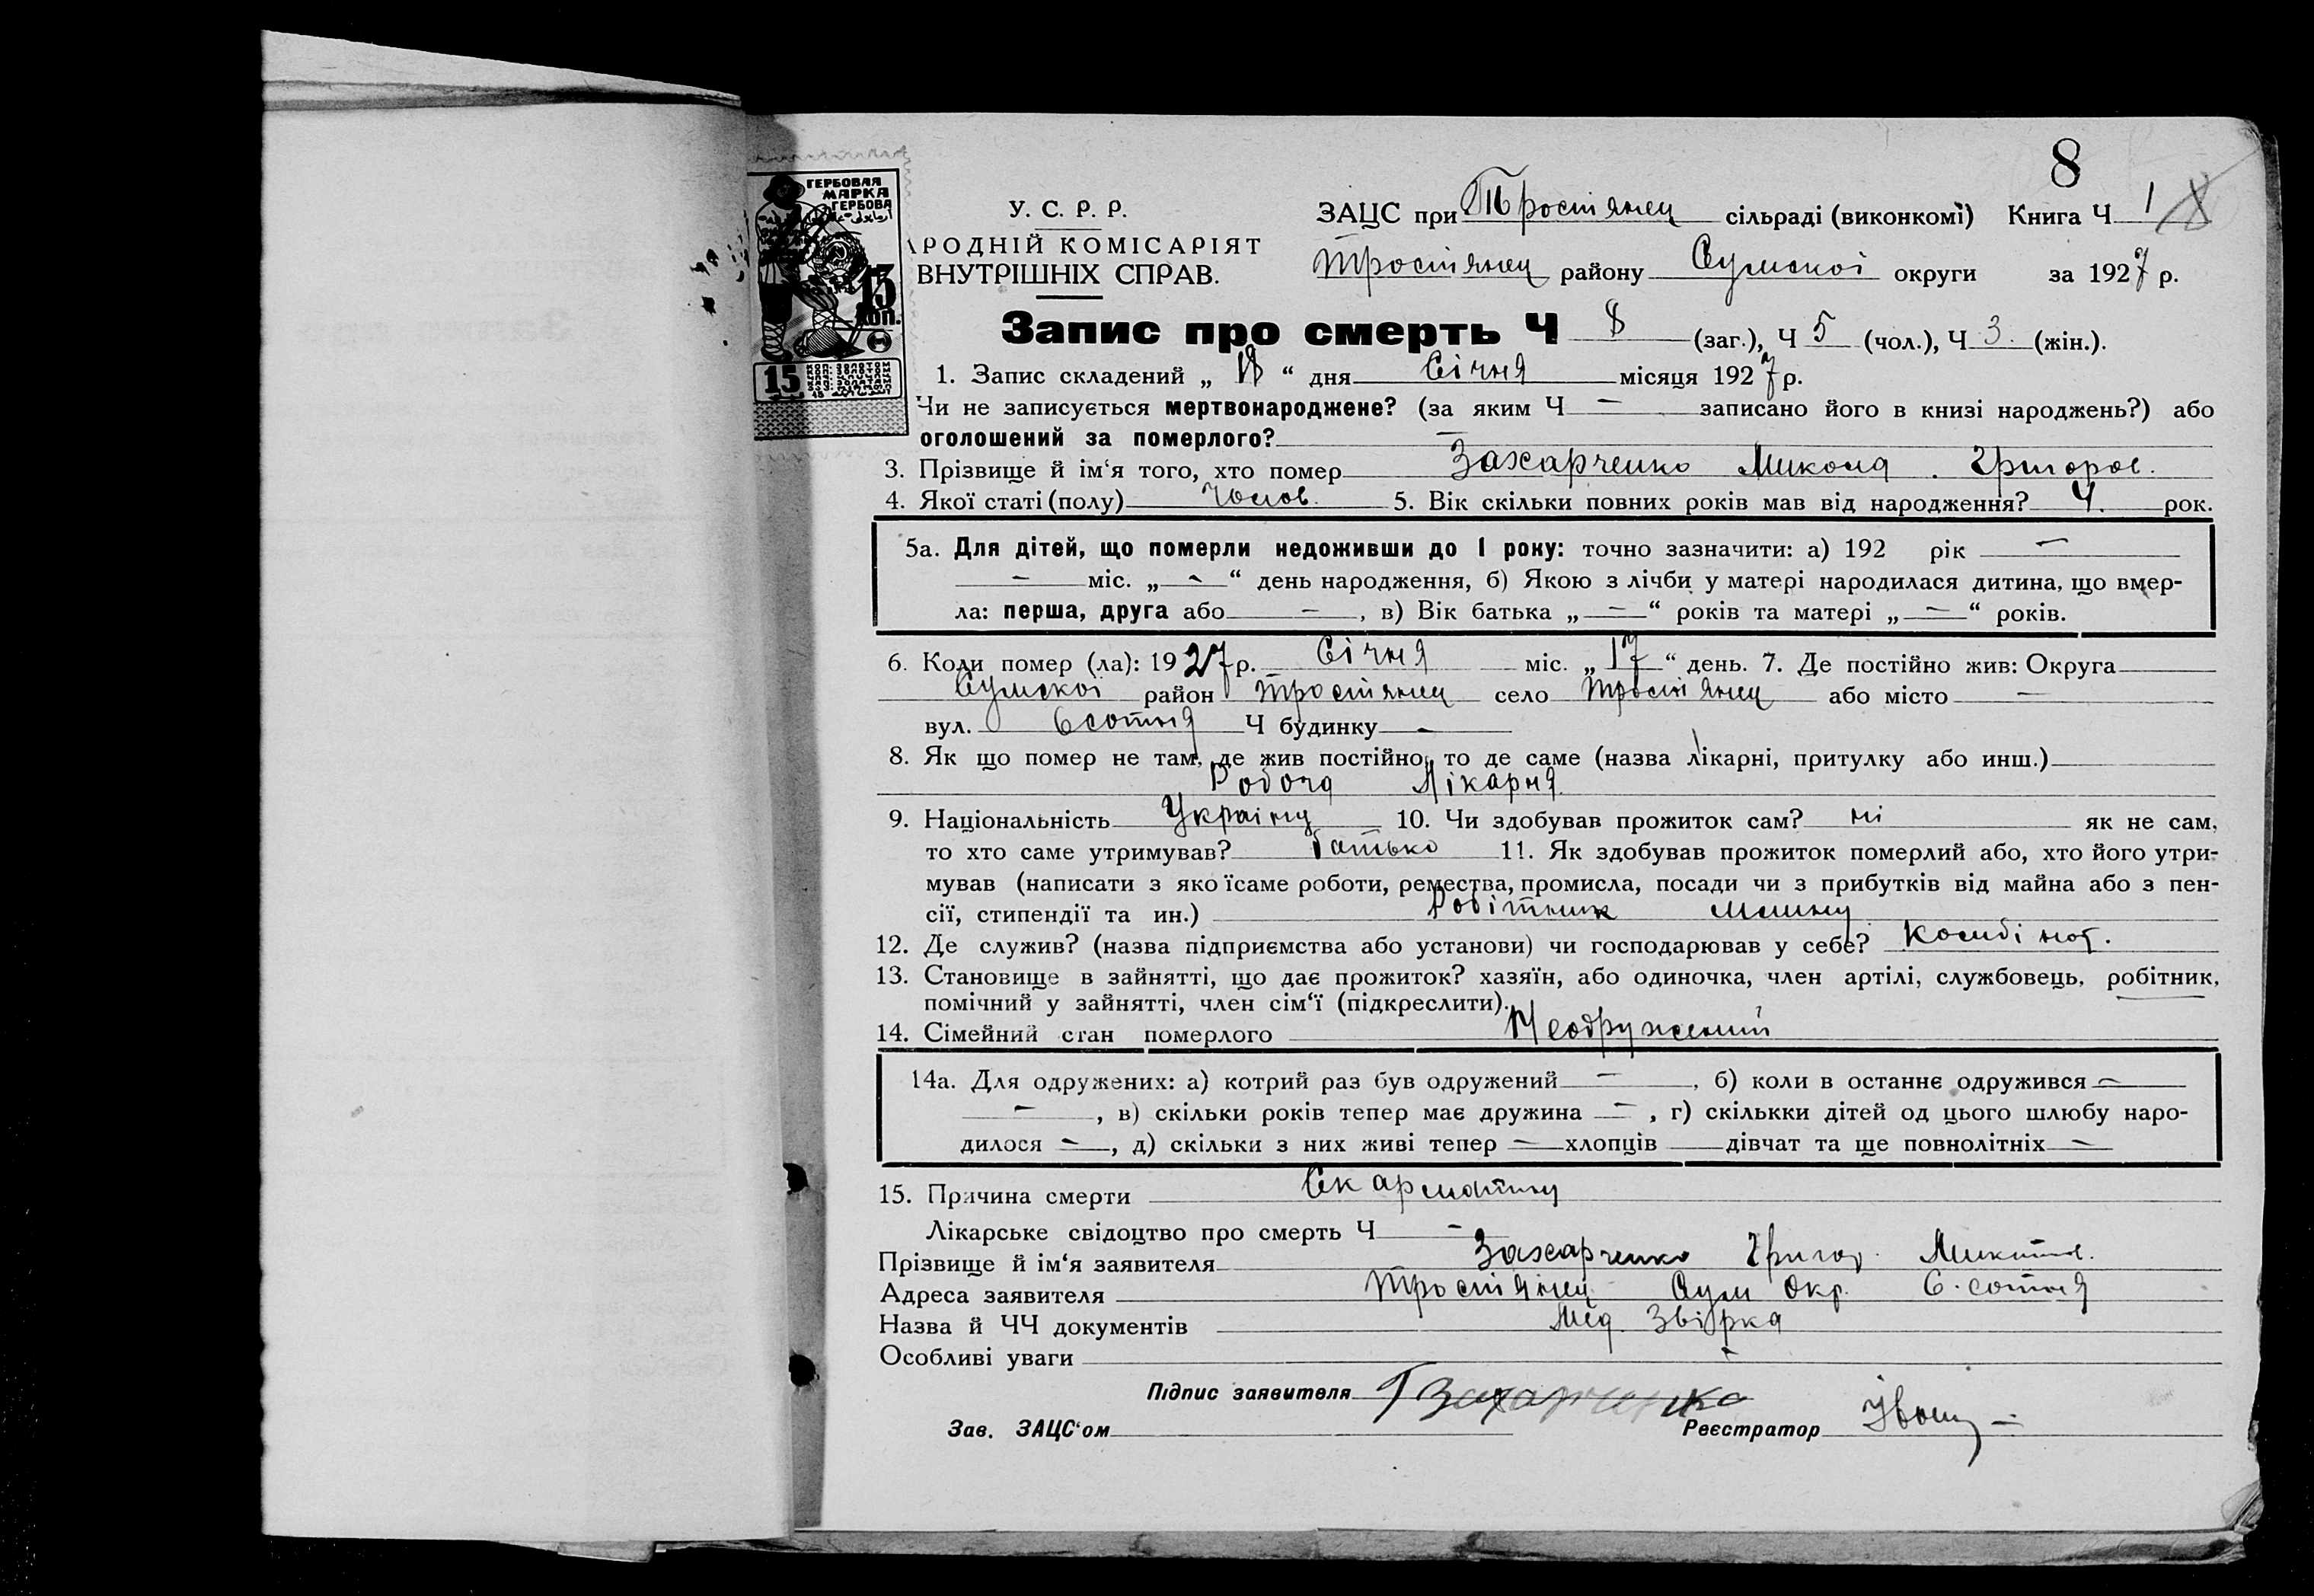 8
ГЕРБОВАЯ
МАРКА
ГЕРБОВА
15
КОП.
15
У. С. Р. Р.
АРОДНІЙ КОМІСАРІЯТ
ВНУТРІШНІХ СПРАВ.
ЗАЦС при Тростянец сільраді (виконкомі) Книга Ч 1
Тростянец району Сумскоі округи за 1927 р.
Запис про смерть Ч 8 (заг.), Ч 5 (чол.), Ч 3 (жін.).
1. Запис складений „ 18 “ дня Січня місяця 1927 р.
Чи не записується мертвонароджене? (за яким Ч — записано його в книзі народжень?) або
оголошений за померлого? —
3. Прізвище й ім‘я того, хто помер Захарченко Микола Григоров.
4. Якої статі (полу) чолов. 5. Вік скільки повних років мав від народження? 4. рок.
5а. Для дітей, що померли недоживши до 1 року: точно зазначити: а) 192 рік —
— міс. „ — “ день народження, б) Якою з лічби у матері народилася дитина, що вмер-
ла: перша, друга або — , в) Вік батька „ — “ років та матері „ — “ років.
6. Коли помер (ла): 1927 р. Січня міс. „ 17 “ день. 7. Де постійно жив: Округа
Сумскоі район Тростянец село Тростянец або місто —
вул. 6 сотня Ч будинку —
8. Як що помер не там, де жив постійно, то де саме (назва лікарні, притулку або инш.)
Робоча Лікарня
9. Національність Украінц 10. Чи здобував прожиток сам? ні як не сам,
то хто саме утримував? батько 11. Як здобував прожиток померлий або, хто його утри-
мував (написати з яко їсаме роботи, ремества, промисла, посади чи з прибутків від майна або з пен-
сії, стипендії та ин.) Робітник
12. Де служив? (назва підприємства або установи) чи господарював у себе? Комбінат.
13. Становище в зайнятті, що дає прожиток? хазяїн, або одиночка, член артілі, службовець, робітник,
помічний у зайнятті, член сім‘ї (підкреслити).
14. Сімейний стан померлого Неодружений
14а. Для одружених: а) котрий раз був одружений — , б) коли в останнє одружився —
— , в) скільки років тепер має дружина — , г) скількки дітей од цього шлюбу наро-
дилося — , д) скільки з них живі тепер — хлопців дівчат та ще повнолітніх —
15. Причина смерти Скарлатину
Лікарське свідоцтво про смерть Ч —
Прізвище й ім‘я заявителя Захарченко Григор. Микитов.
Адреса заявителя Тростянец Сум Окр. 6. сотня
Назва й ЧЧ документів
Особливі уваги
Підпис заявителя Г Захарченко
Зав. ЗАЦС‘ом Реєстратор